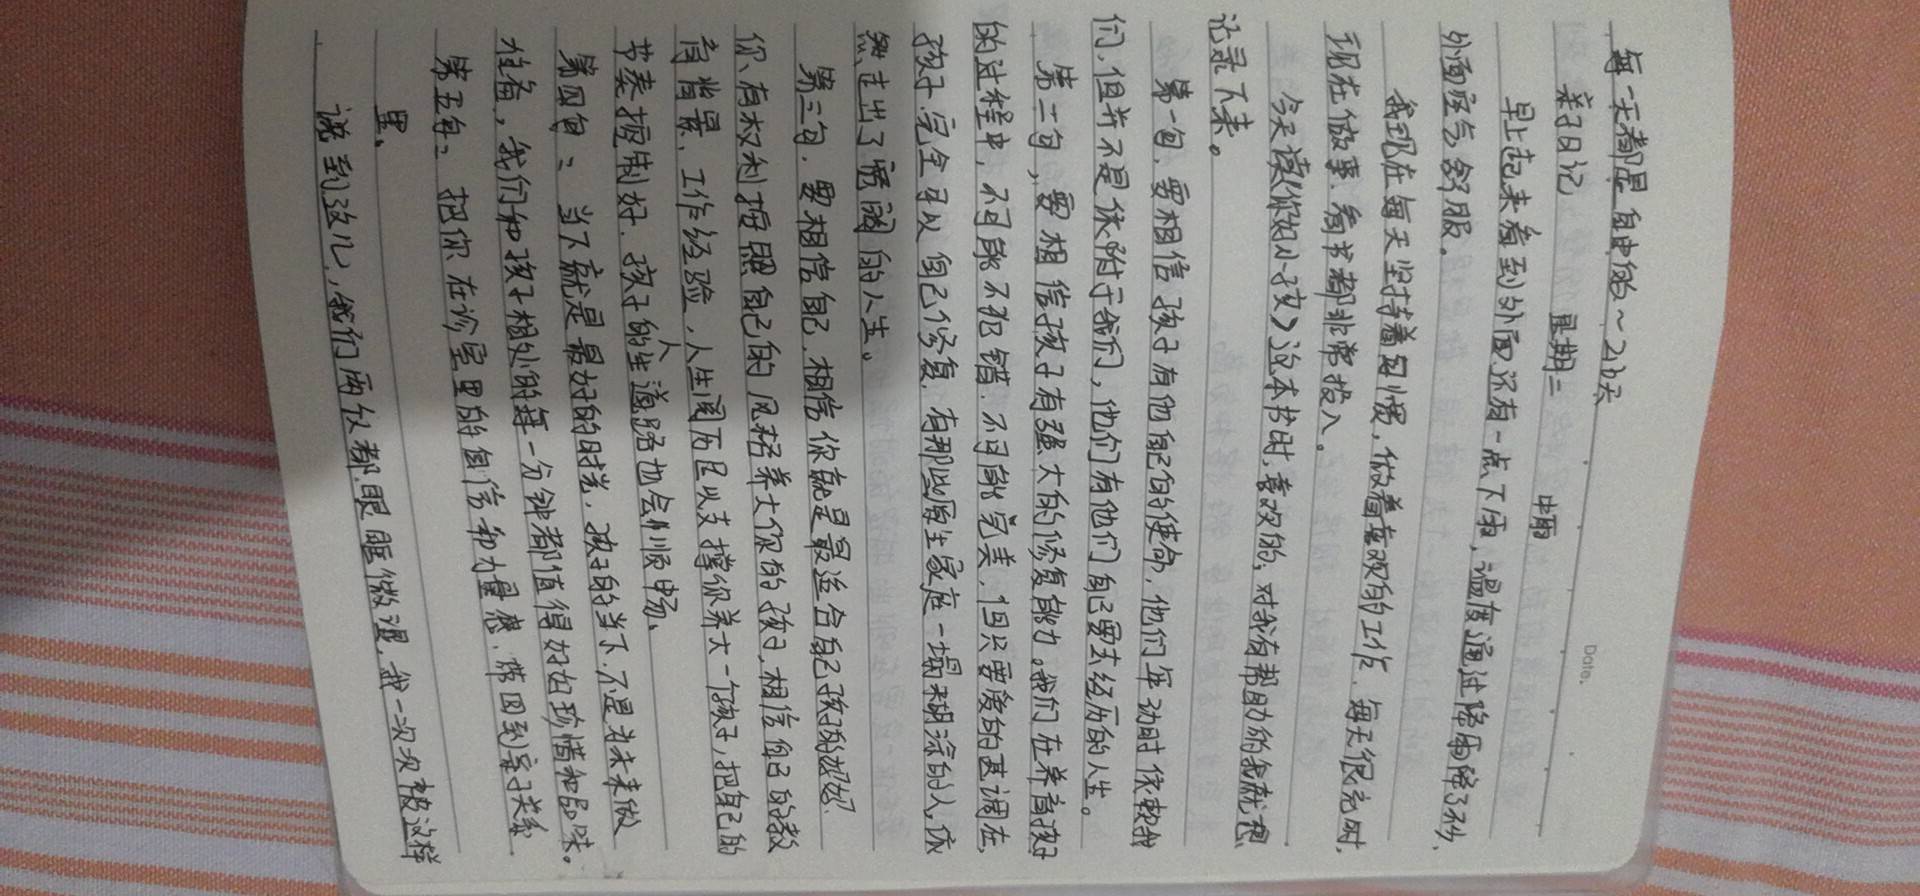 每一天都是自由的~216天
Date.
亲子日记 星期三 中雨
早上起来看到外面还有一点下雨,温度通过降雨降了不少,
外面空气舒服。
我现在每天坚持着好习惯,做着喜欢的工作,每天很充实,
现在做事、看书都非常投入。
今天读《你好小孩》这本书时,喜欢的,对我有帮助的我就想
记录下来。
第一句,要相信孩子有他自己的使命,他们年幼时依赖我
们,但并不是依附于我们,他们有他们自己要去经历的人生。
第二句,要相信孩子有强大的修复能力。我们在养育孩子
的过程中,不可能不犯错,不可能完美,但只要爱的基调在,
孩子完全可以自己修复,有那些原生家庭一塌糊涂的人,依
然走出了宽阔的人生。
第三句,要相信自己,相信你就是最适合自己孩子的妈妈,
你有权利按照自己的风格养大你的孩子,相信自己的教
育背景、工作经验,人生阅历足以支撑你养大一个孩子,把自己的
节奏控制好,孩子的人生道路也会顺畅。
第四句:当下就是最好的时光,孩子的当下,不是为未来做
准备,我们和孩子相处的每一分钟都值得好好珍惜和品味。
第五句:把你在诊室里的自信和力量感,带回到亲子关系
里。
说到这儿,我们两次都眼眶微湿,我一次次被这样